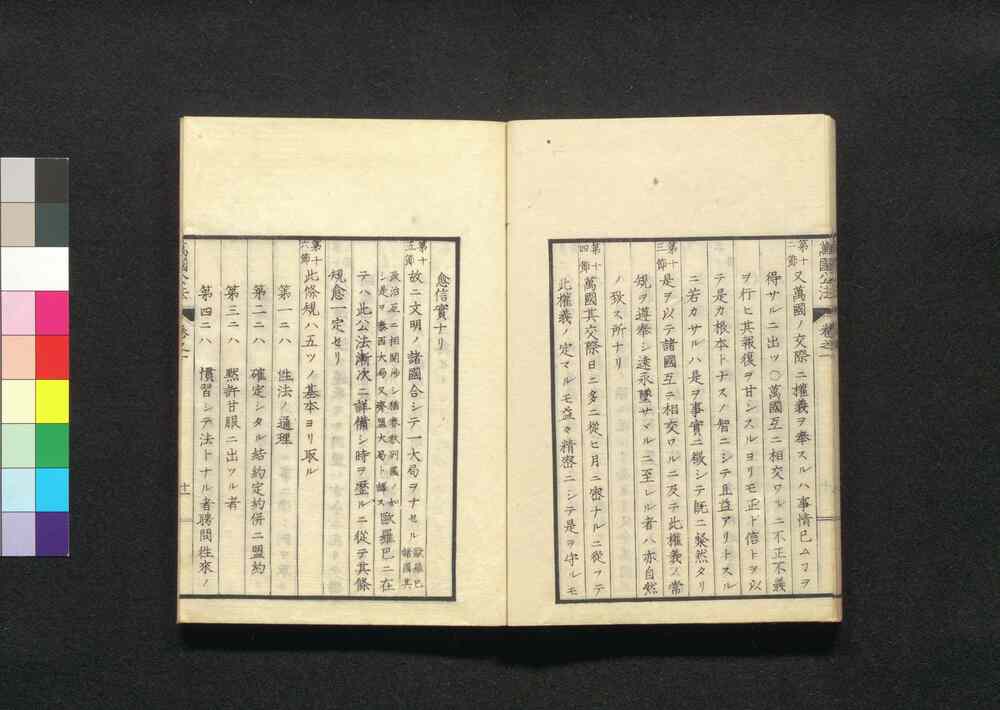 萬國公法
卷之一
第十二節 又萬國ノ交際ニ權義ヲ奉スルハ事情已ムヿヲ
得サルニ出ツ○萬國互ニ相交ワルニ不正不義
ヲ行ヒ其報復ヲ甘ンスルヨリモ正ト信トヲ以
テ是カ根本トナスノ智ニシテ且益アリトスル
ニ若カサルハ是ヲ事實ニ徴シテ既ニ粲然タリ
第十三節 是ヲ以テ諸國互ニ相交ワルニ及テ此權義ヲ常
規ヲ遵奉シ遠永墜サマルニ至レル者ハ亦自然
ノ致ス所ナリ
第十四節 萬國其交際日ニ多ニ從ヒ月ニ密ナルニ從フテ
此權義ノ定マルモ益々精密ニシテ是ヲ守ルモ
愈信實ナリ
第十五節 故ニ文明ノ諸國合シテ一大局ヲナセル 歐羅巴諸國其
政治互ニ相関渉シ猶春秋列國ノ如
シ是ヲ 泰西大局又齊盟大局ト譯ス 歐羅巴ニ在
テハ此公法漸次ニ詳備シ時ヲ歷ルニ從テ其條
規愈一定セリ
第十六節 此條規ハ五ツノ基本ヨリ取ル
第一ニハ 性法ノ通理
第二ニハ 確定シタル結約定約併ニ盟約
第三ニハ 黙許甘服ニ出ツル者
第四ニハ 慣習シテ法トナル者聘問往來ノ
萬國公法
卷之一
十一